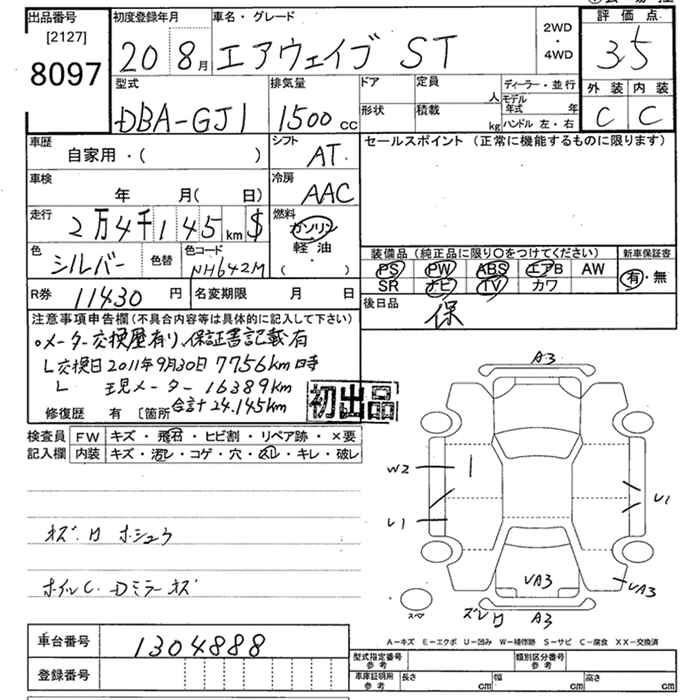 出品番号 初度登録年月 車名・グレード 2WD・4WD 評価点
[2127]
8097 20 8月 エアウェイブ ST 3.5
外装 内装
C C
型式 排気量 ドア 定員 人 ディーラー・並行
DBA-GJ1 1500cc 形状 積載 kg モデル年式 年
ハンドル 左・右
車歴 シフト セールスポイント (正常に機能するものに限ります)
自家用・( ) AT
車検 冷房
年 月(日) AAC
走行 燃料
2万4千145km $ ガソリン
軽油
( )
色 色替 色コード 装備品 (純正品に限り○をつけてください) 新車保証書
シルバー NH642M PS PW ABS エアB AW 有・無
SR ナビ TV カワ
R券 11430円 名変期限 月 日 後日品
保
注意事項申告欄 (不具合内容等は具体的に記入して下さい)
○メーター交換歴有り、保証書記載有
└交換日2011年9月30日 7756km時
└ 現メーター 16389km
合計24.145km
修復歴 有 〔箇所
初出品
検査員 FW キズ・飛石・ヒビ割・リペア跡・×要
記入欄 内装 キズ・汚レ・コゲ・穴・スレ・キレ・破レ
A3
W2
U1
U1
VA3
VA3
ズレ
A3
スペ
ホイルC.Dミラーキズ
A-キズ E-エクボ U-凹み W-補修跡 S-サビ C-腐食 XX-交換済
車台番号 1304888
登録番号
型式指定番号 参考 類別区分番号 参考
車庫証明用 参考 長さ cm 幅 cm 高さ cm